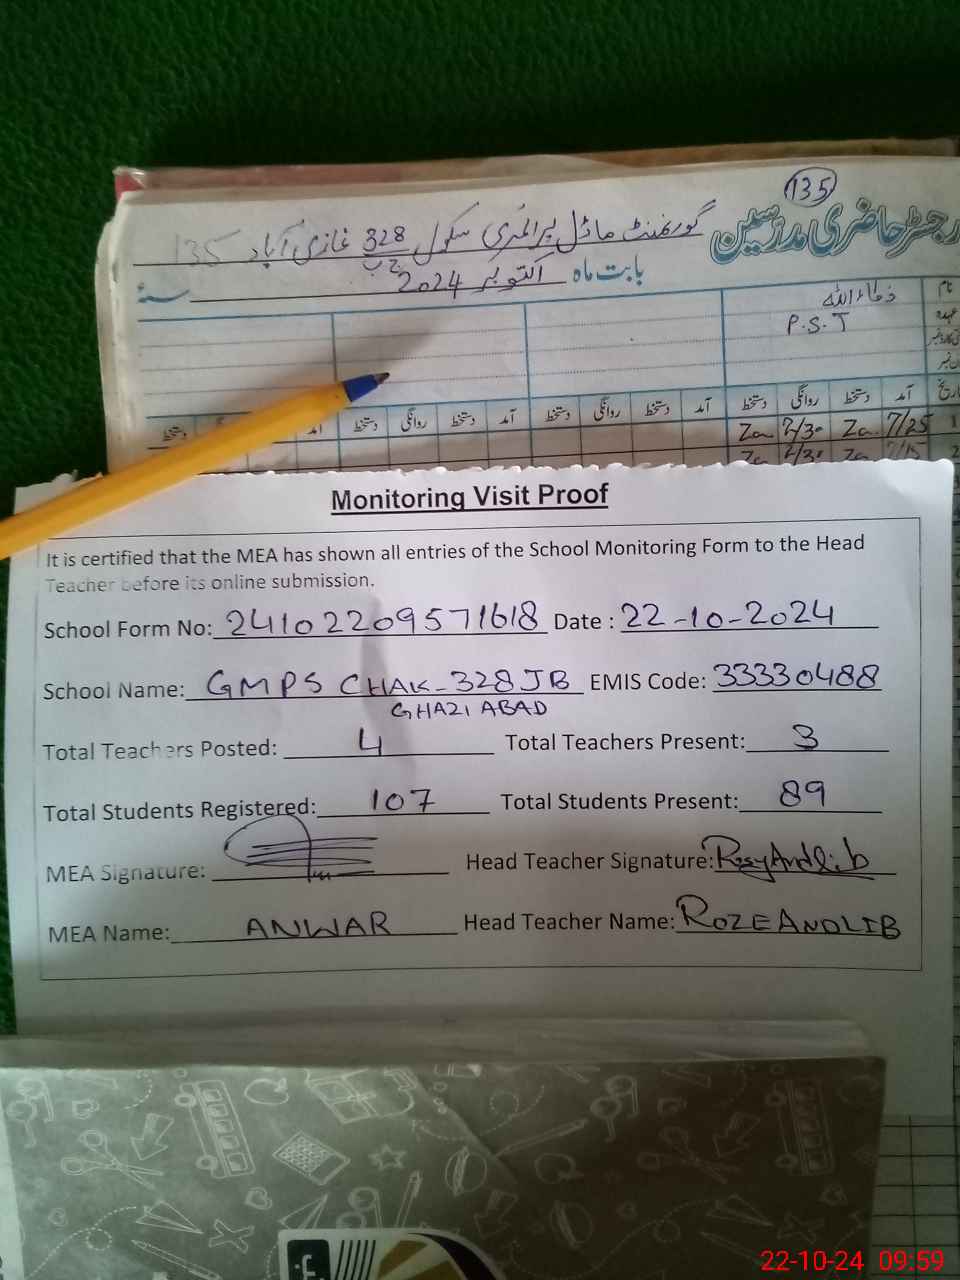 135
رجسٹر حاضری مدرسین
گورنمنٹ ماڈل پرائمری سکول 328 ج ب غازی آباد 135
بابت ماہ اکتوبر 2024 سنہ
نام
ذکاء اللہ
عہدہ
P.S.T
تاریخ آمد دستخط روانگی دستخط آمد دستخط روانگی دستخط آمد دستخط روانگی دستخط آمد دستخط
1 7/25 Za. 2/30 Za.
2 7/15 Za 2/30 Za
Monitoring Visit Proof
It is certified that the MEA has shown all entries of the School Monitoring Form to the Head
Teacher before its online submission.
School Form No: 24102209571618 Date : 22-10-2024
School Name: GMPS CHAK-328JB EMIS Code: 33330488
GHAZI ABAD
Total Teachers Posted: 4 Total Teachers Present: 3
Total Students Registered: 107 Total Students Present: 89
MEA Signature: Head Teacher Signature: RozyAndlib
MEA Name: ANWAR Head Teacher Name: ROZE ANDLIB
if
22-10-24 09:59